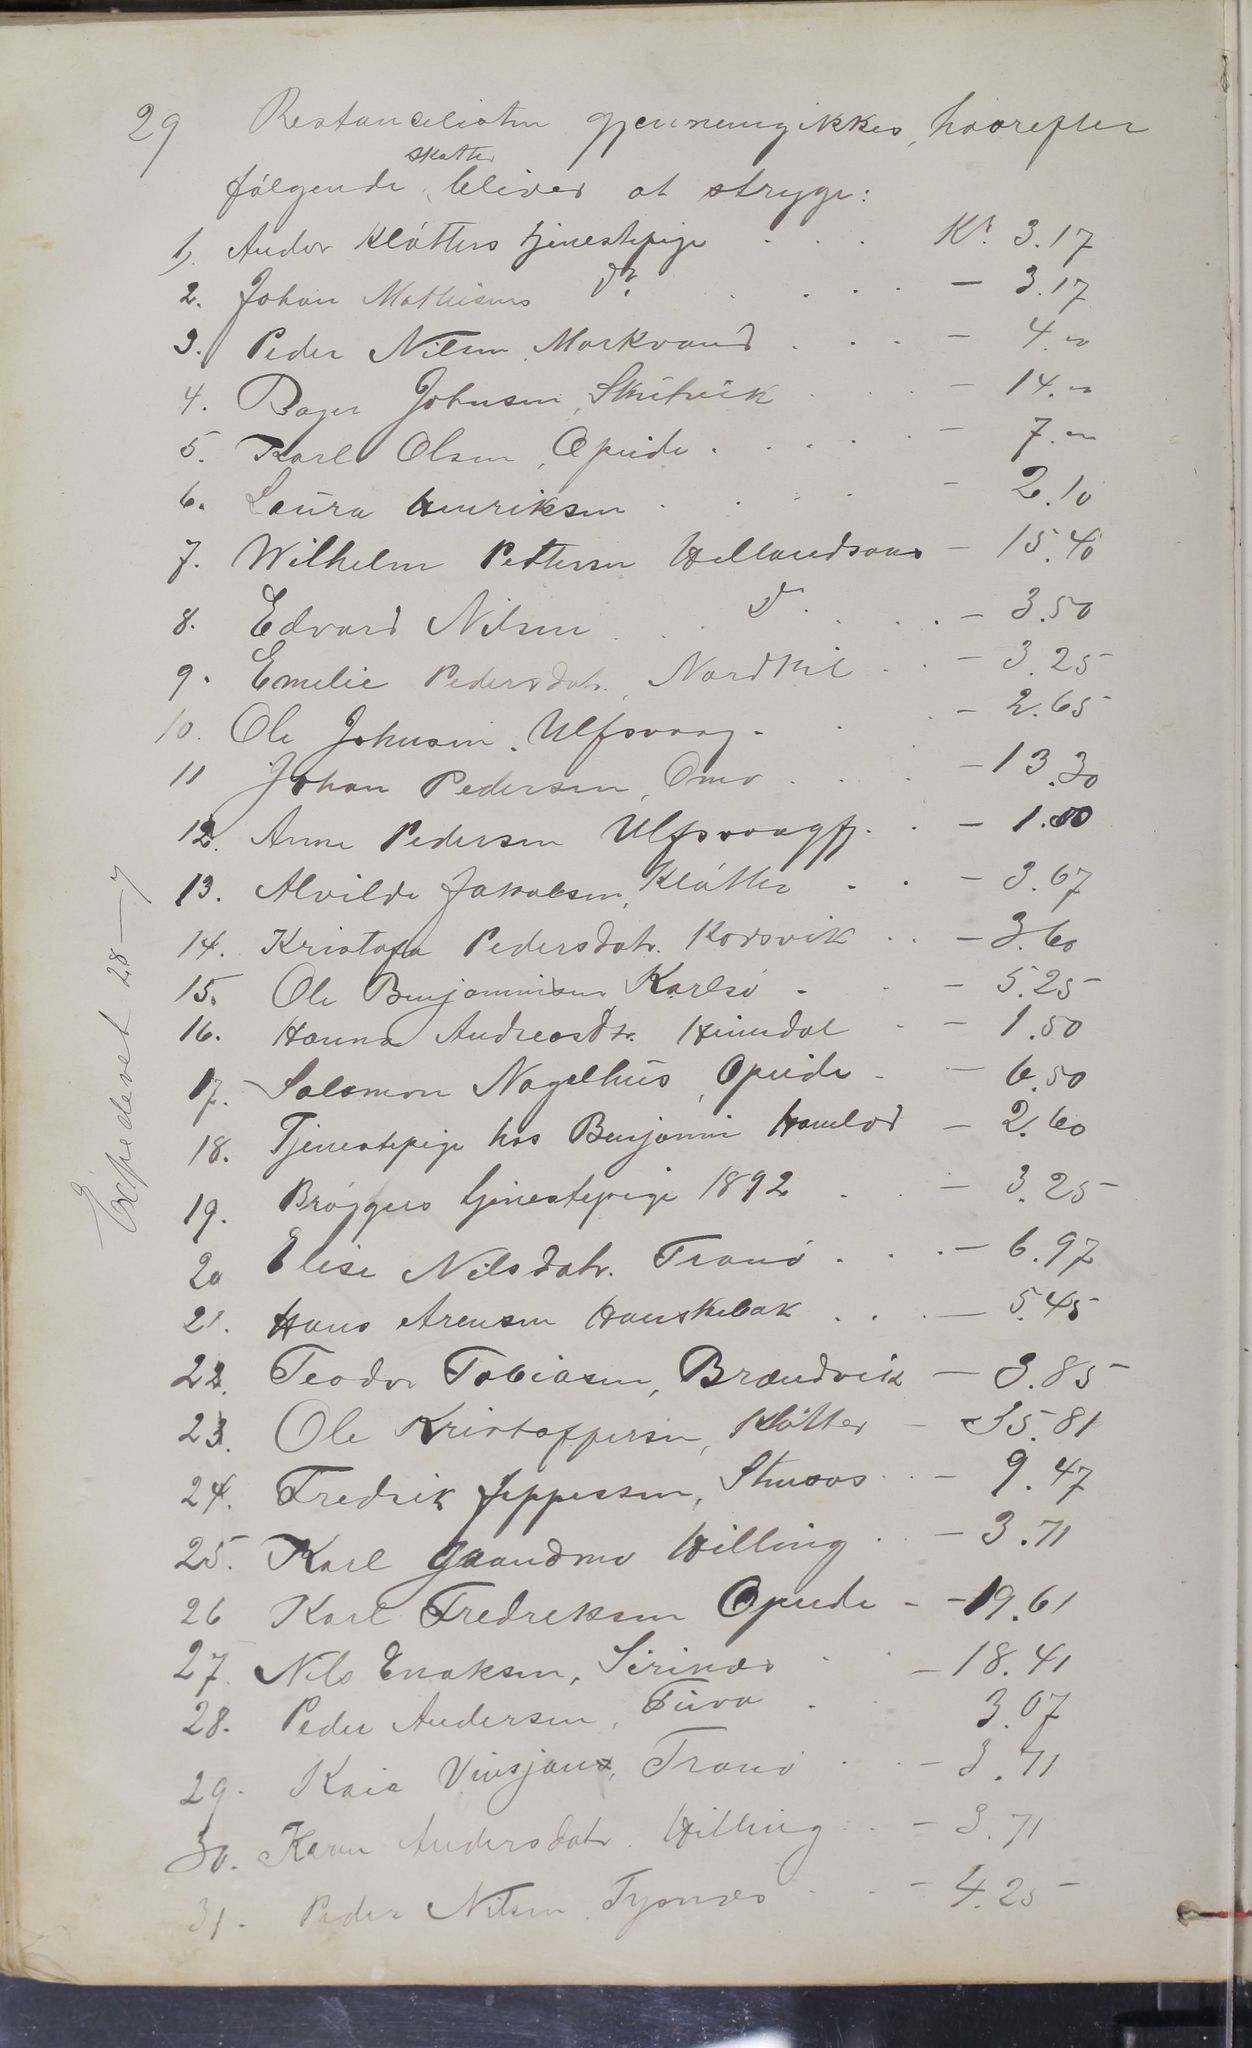 29 Restancelisten gjennemgikkes, hvorefter
skatter
følgende bliver at stryge:
1) Andor Kløtters tjenestepige . . . Kr. 3.17
2. Johan Mathisens do. . . . . - 3.17
3. Peder Nilsen, Markvand . . . - 4. "
4. Bager Johnsen, Skutvik . . . - 14. "
5. Karl Olsen, Opeide . . . . . - 7. "
6. Laura Henriksen . . . . - 2.10
7. Wilhelm Pettersen Hellandsnes - 15.40
8. Edvard Nilsen . . . do. . . . - 3.50
9. Emelie Pedersdatr., Nordkil . . - 3.25
10. Ole Johnsen, Ulfsvaag . . . - 2.65
11 Johan Pedersen, Omo . . . - 13.30
12. Anne Pedersen Ulfsvaagfj. . . - 1.00
13. Alvilde Jakobsen, Kløtter . . - 3.67
14. Kristofa Pedersdatr. Korsvik . . - 3.60
15. Ole Benjaminsen Karlsø . . - 5.25
16. Hanna Andreasdtr. Heimdal . - 1.50
17. Salomon Nagelhus, Opeide . - 6.50
18. Tjenestepige hos Benjamin Hamlod - 2.60
19. Brøggers tjenestepige 1892 . . - 3.25
20 Elise Nilsdatr. Tranø . . . - 6.97
21. Hans Arensen Hanskebak . . . - 5.45
22. Teodor Tobiasen, Brændvik - 3.85
23. Ole Kristoffersen, Kløtter - 35.81
24. Fredrik Jeppessen, Stenaas . . - 9.47
25. Karl Graandmo Hilling . . - 3.71
26 Karl Fredriksen Opeide - - 19.61
27. Nils Enoksen, Sirines . . - 18.41
28. Peder Andersen, Tuva . . 3.07
29. Kaia Vinsjans, Tranø . . - 3.71
30. Karen Andersdatr. Hilling . . - 3.71
31. Peder Nilsen, Tysnes . . - 4.25
Expederet 28-7